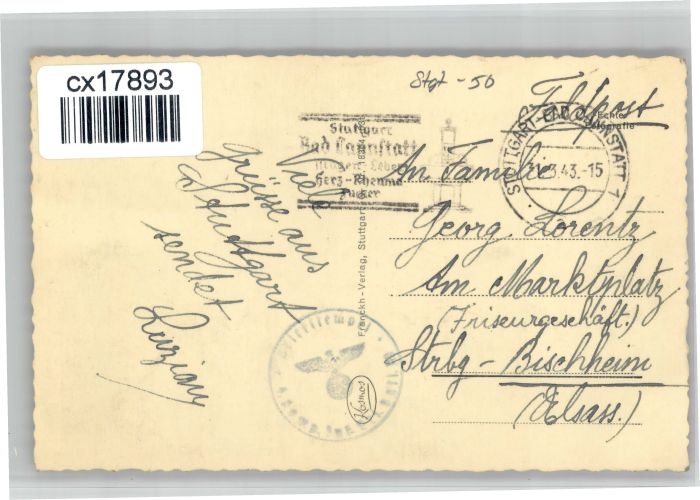 cx17893
Stgt - 50
Feldpost
Echte
Stuttgart
Bad Cannstatt
Magen-Leber
Herz-Rheuma
Zucker
STUTTGART-BAD CANNSTATT 1
3.43.-15
An Familie
Georg Lorentz
Am Marktplatz
(Friseurgeschäft.)
Strbg - Bischheim
(Elsass.)
Viele
Grüsse aus
Stuttgart
sendet
Franckh-Verlag, Stuttgart
Kosmos
Briefstempel